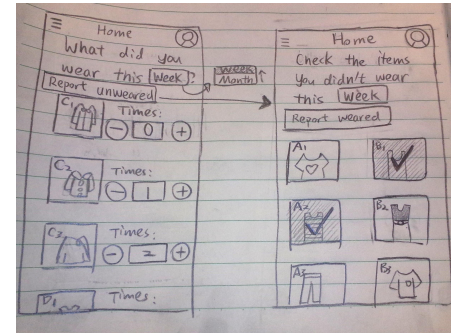 Home
What did you
wear this Week?
Report unweared
C1
Times:
0
C2
Times:
1
C3
Times:
2
D1
Times:
Week
Month
Home
Check the items
you didn't wear
this Week
Report weared
A1
B1
A2
B2
A3
B3